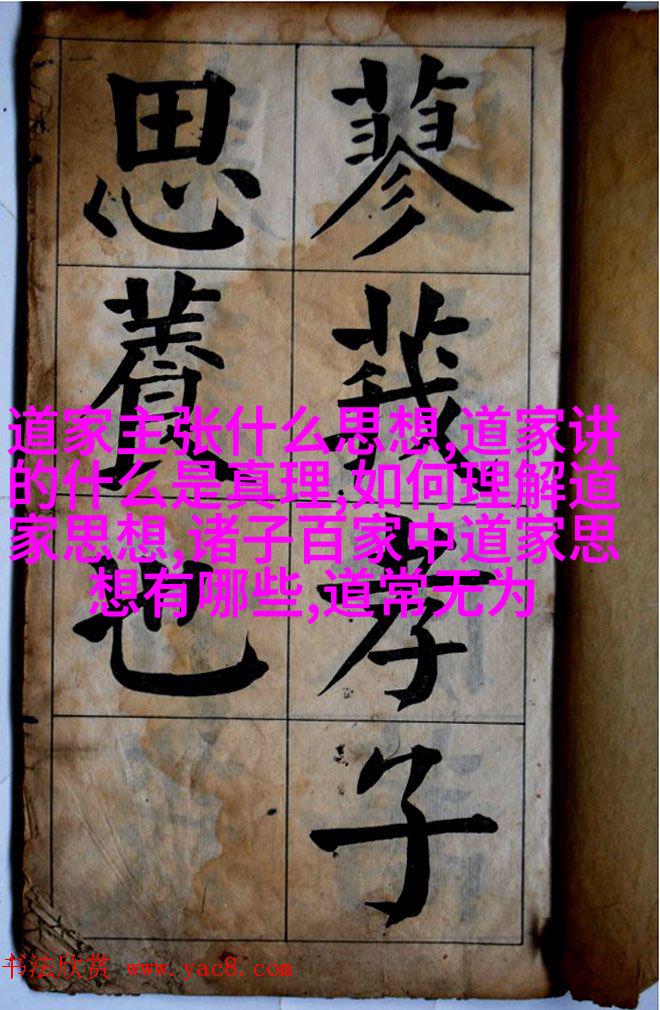 蓼莪孝子
思養也
道家主张什么思想,道家讲
的什么是真理,如何理解道
家思想,诸子百家中道家思
想有哪些,道常无为
书法欣赏 www.yac8.com